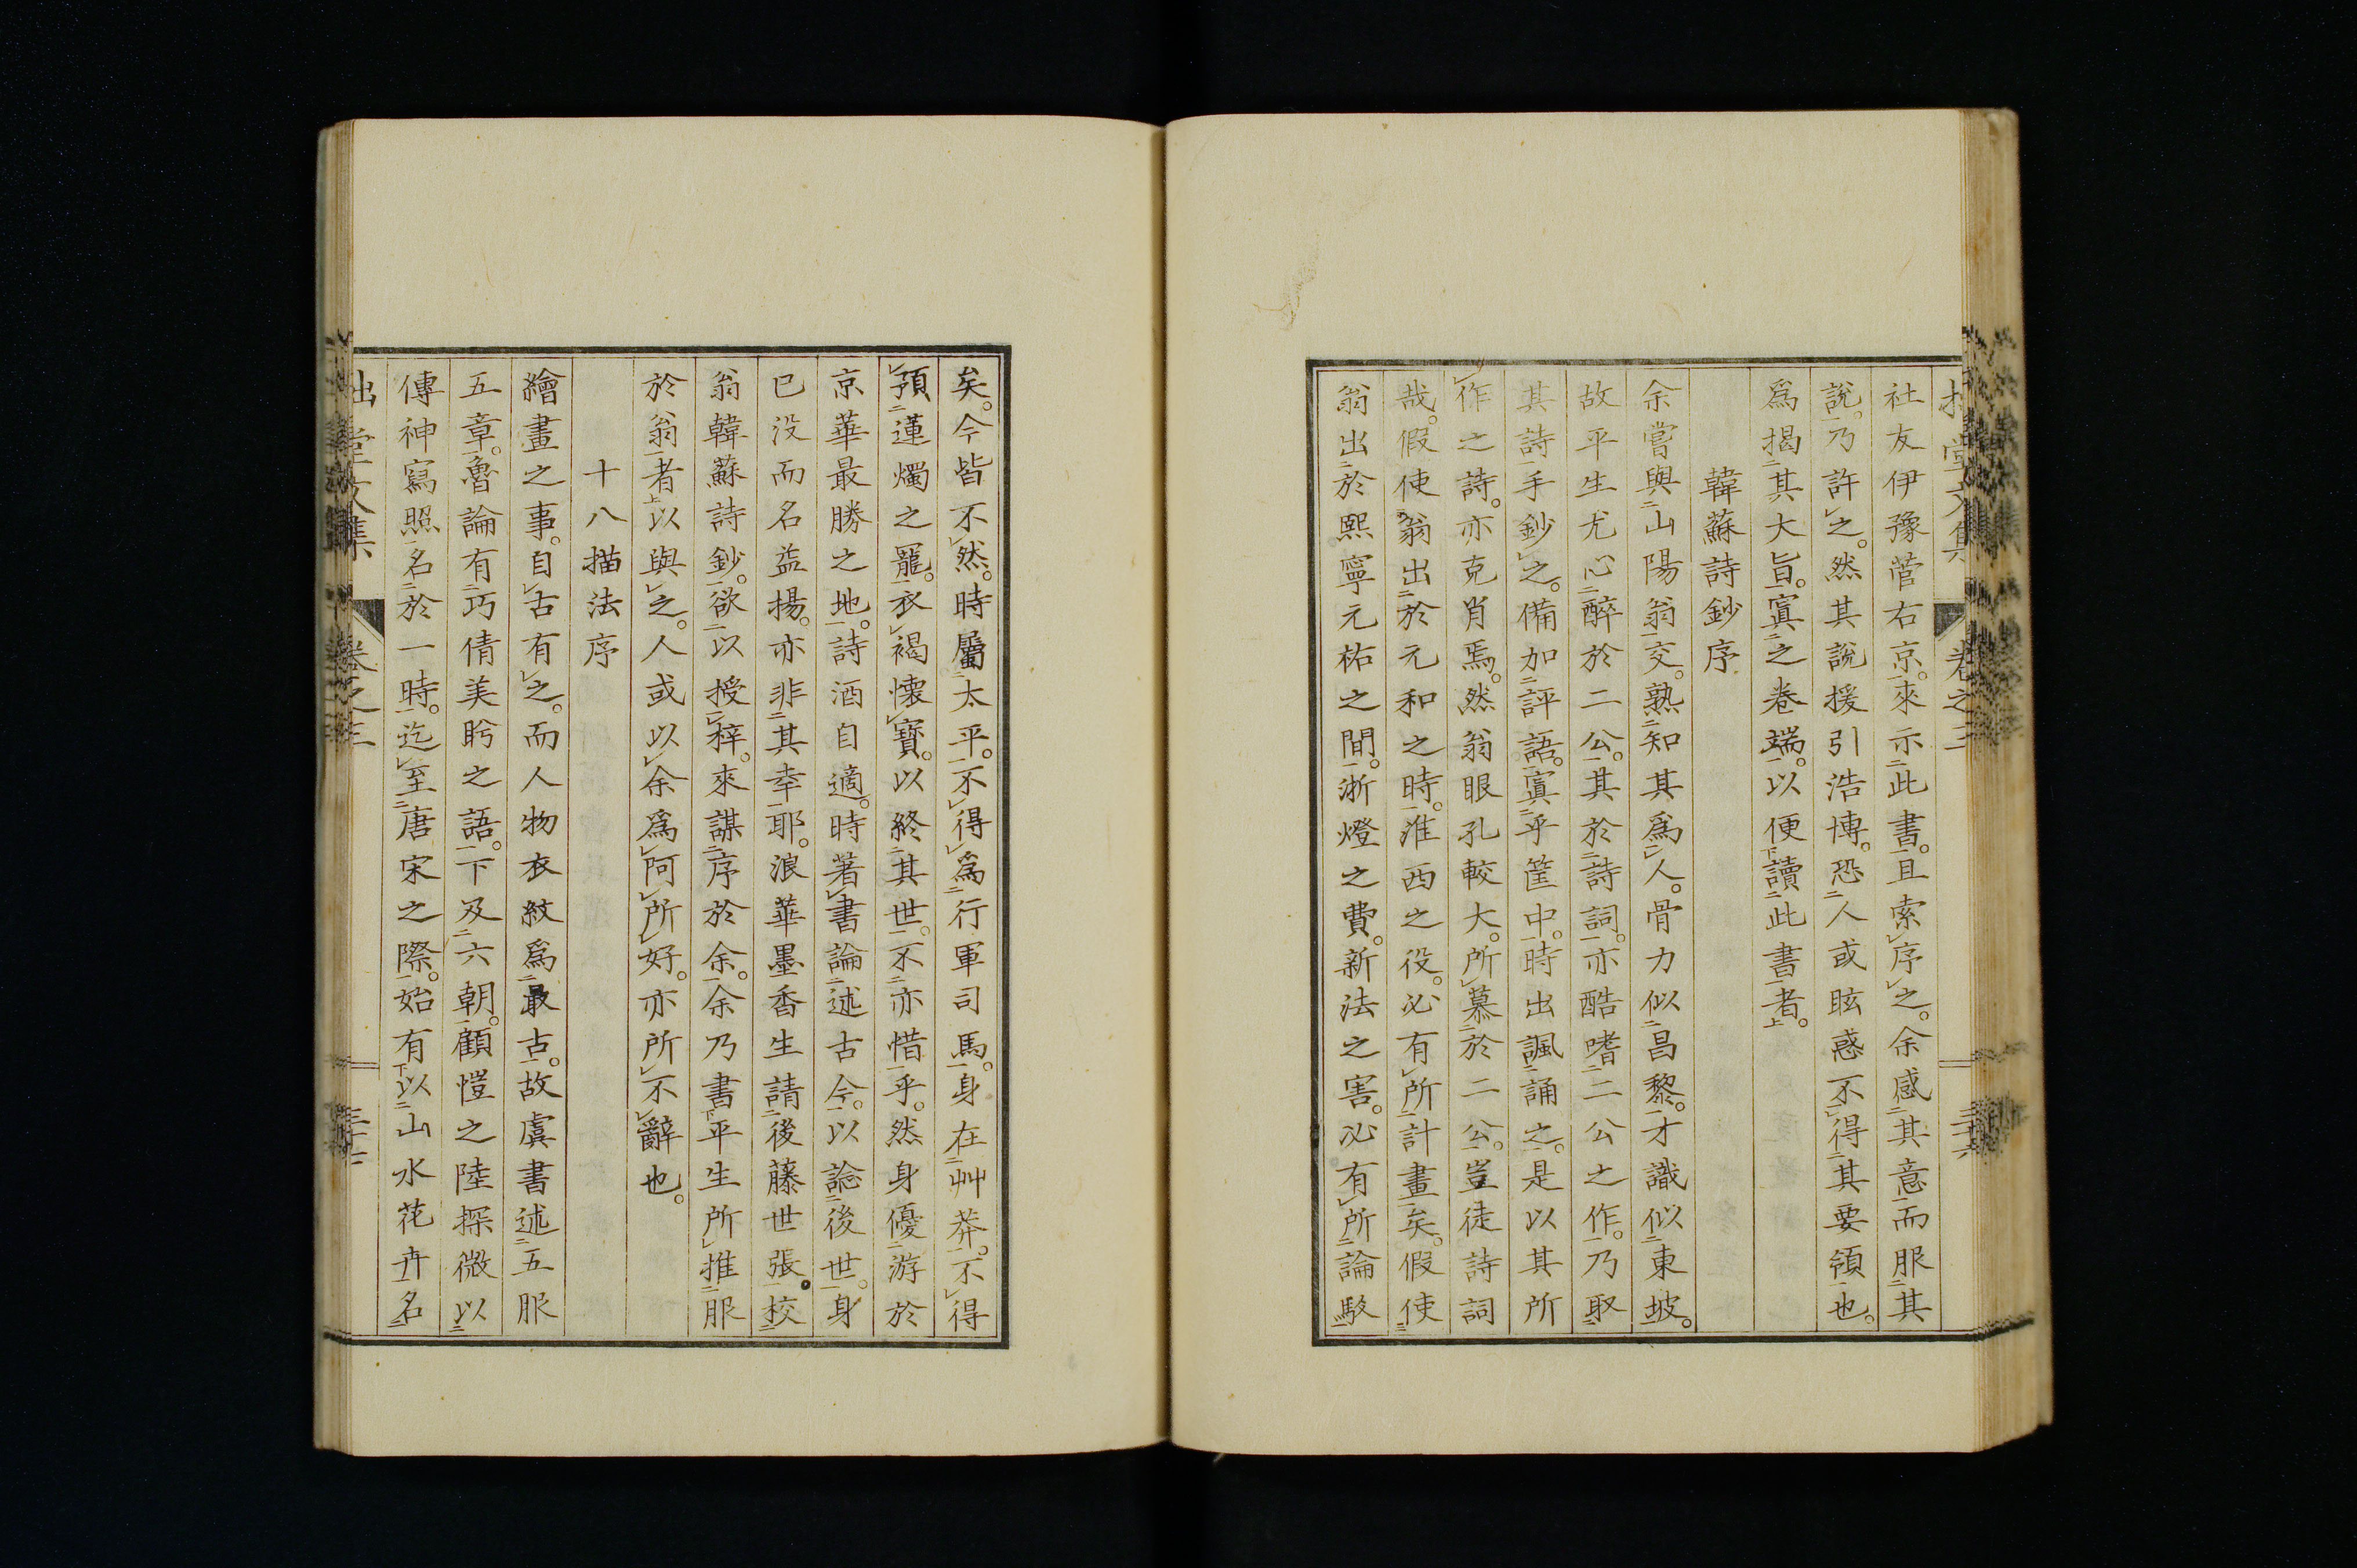 社友伊豫菅右京。來示此書。且索序之。余感其意而服其
說。乃許之。然其說援引浩博。恐人或眩惑不得其要領也。
爲揭其大旨。寘之卷端。以便讀此書者。
韓蘇詩鈔序
余嘗與山陽翁交。熟知其爲人。骨力似昌黎。才識似東坡。
故平生尤心醉於二公。其於詩詞。亦酷嗜二公之作。乃取
其詩手鈔之。備加評語。寘乎筐中。時出諷誦之。是以其所
作之詩。亦克肖焉。然翁眼孔較大。所慕於二公。豈徒詩詞
哉。假使翁出於元和之時。淮西之役。必有所計畫矣。假使
翁出於熙寧元祐之間。浙燈之費。新法之害。必有所論駁
矣。今皆不然。時屬太平。不得爲行軍司馬。身在艸莽。不得
預蓮燭之寵。衣褐懷寶。以終其世。不亦惜乎。然身優游於
京華最勝之地。詩酒自適。時著書論述古今。以諗後世。身
已没而名益揚。亦非其幸耶。浪華墨香生請後藤世張。校
翁韓蘇詩鈔。欲以授梓。來謀序於余。余乃書平生所推服
於翁者以與之。人或以余爲阿所好。亦所不辭也。
十八描法序
繪畫之事。自古有之。而人物衣紋爲最古。故虞書述五服
五章。魯論有巧倩美盼之語。下及六朝。顧愷之陸探微以
傳神寫照名於一時。迄至唐宋之際。始有以山水花卉名
堂文集 卷之三